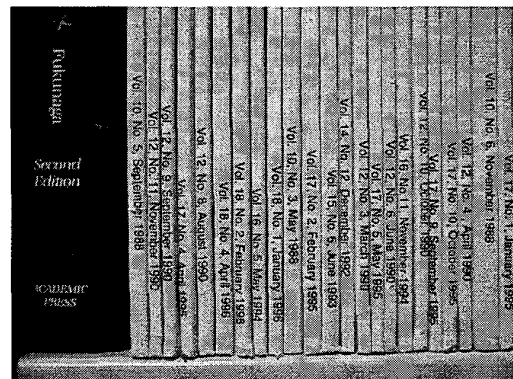 Fukunaga
Second
Edition
ACADEMIC
PRESS
Vol. 10 No. 5, September 1988
Vol. 12, No. 11, November 1990
Vol. 12, No. 9, September 1990
Vol. 17 No. 4, April 1995
Vol. 12 No. 8, August 1990
Vol. 18, No. 4, April 1996
Vol. 18, No. 2, February 1996
Vol. 16, No. 5, May 1994
Vol. 18, No. 1, January 1996
Vol. 10, No. 3, May 1988
Vol. 17 No. 2, February 1995
Vol. 15, No. 6, June 1993
Vol. 14 No. 12, December, 1992
Vol. 12, No. 3, March 1990
Vol. 17, No. 5, May 1995
Vol. 12 No. 6, June 1990
Vol. 16 No. 11, November 1994
Vol. 17 No. 9, September 1995
Vol. 17 No. 10, October 1995
Vol. 12, No. 4, April 1990
Vol. 10 No. 6, November 1988
Vol. 17 No. 1, January 1995